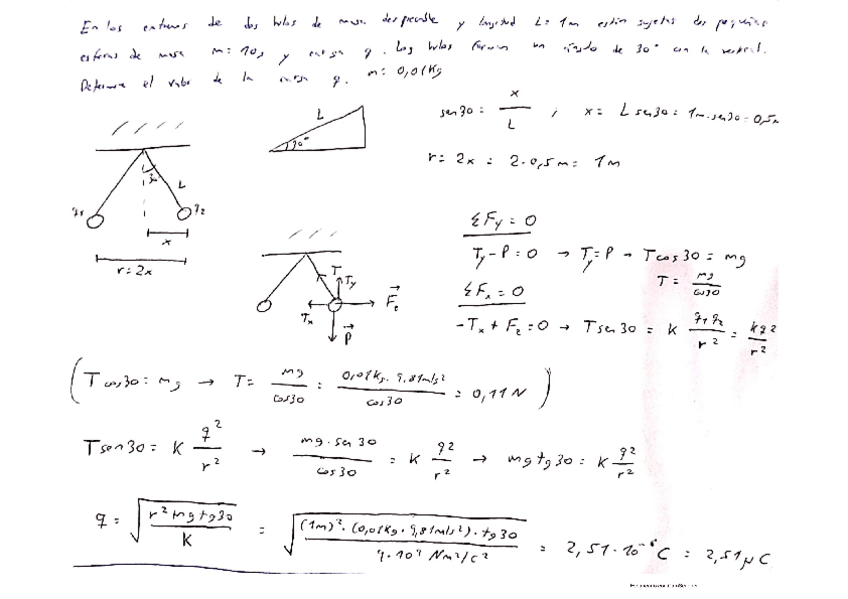 En los extremos de dos hilos de masa despreciable y longitud L = 1m están sujetas dos pequeñas
esferas de masa m = 10g y carga q. Los hilos forman un ángulo de 30° con la vertical.
Determina el valor de la carga q. m = 0,01kg
sen30 = x / L ; x = L sen30 = 1m · sen30 = 0,5m
r = 2x = 2 · 0,5m = 1m
L
30°
30
L
q1
q2
x
r = 2x
T
Ty
Tx
Fe
P
ΣFy = 0
Ty - P = 0 → Ty = P → T cos30 = mg
T = mg / cos30
ΣFx = 0
-Tx + Fe = 0 → T sen30 = K q1 q2 / r² = kq² / r²
(T cos30 = mg → T = mg / cos30 = 0,01kg · 9,81m/s² / cos30 = 0,11N)
T sen30 = K q² / r² → mg · sen30 / cos30 = K q² / r² → mg tg30 = K q² / r²
q = √(r² mg tg30 / K) = √((1m)² · (0,01kg · 9,81m/s²) · tg30 / 9·10⁹ Nm²/C²) = 2,51·10⁻⁶C = 2,51μC